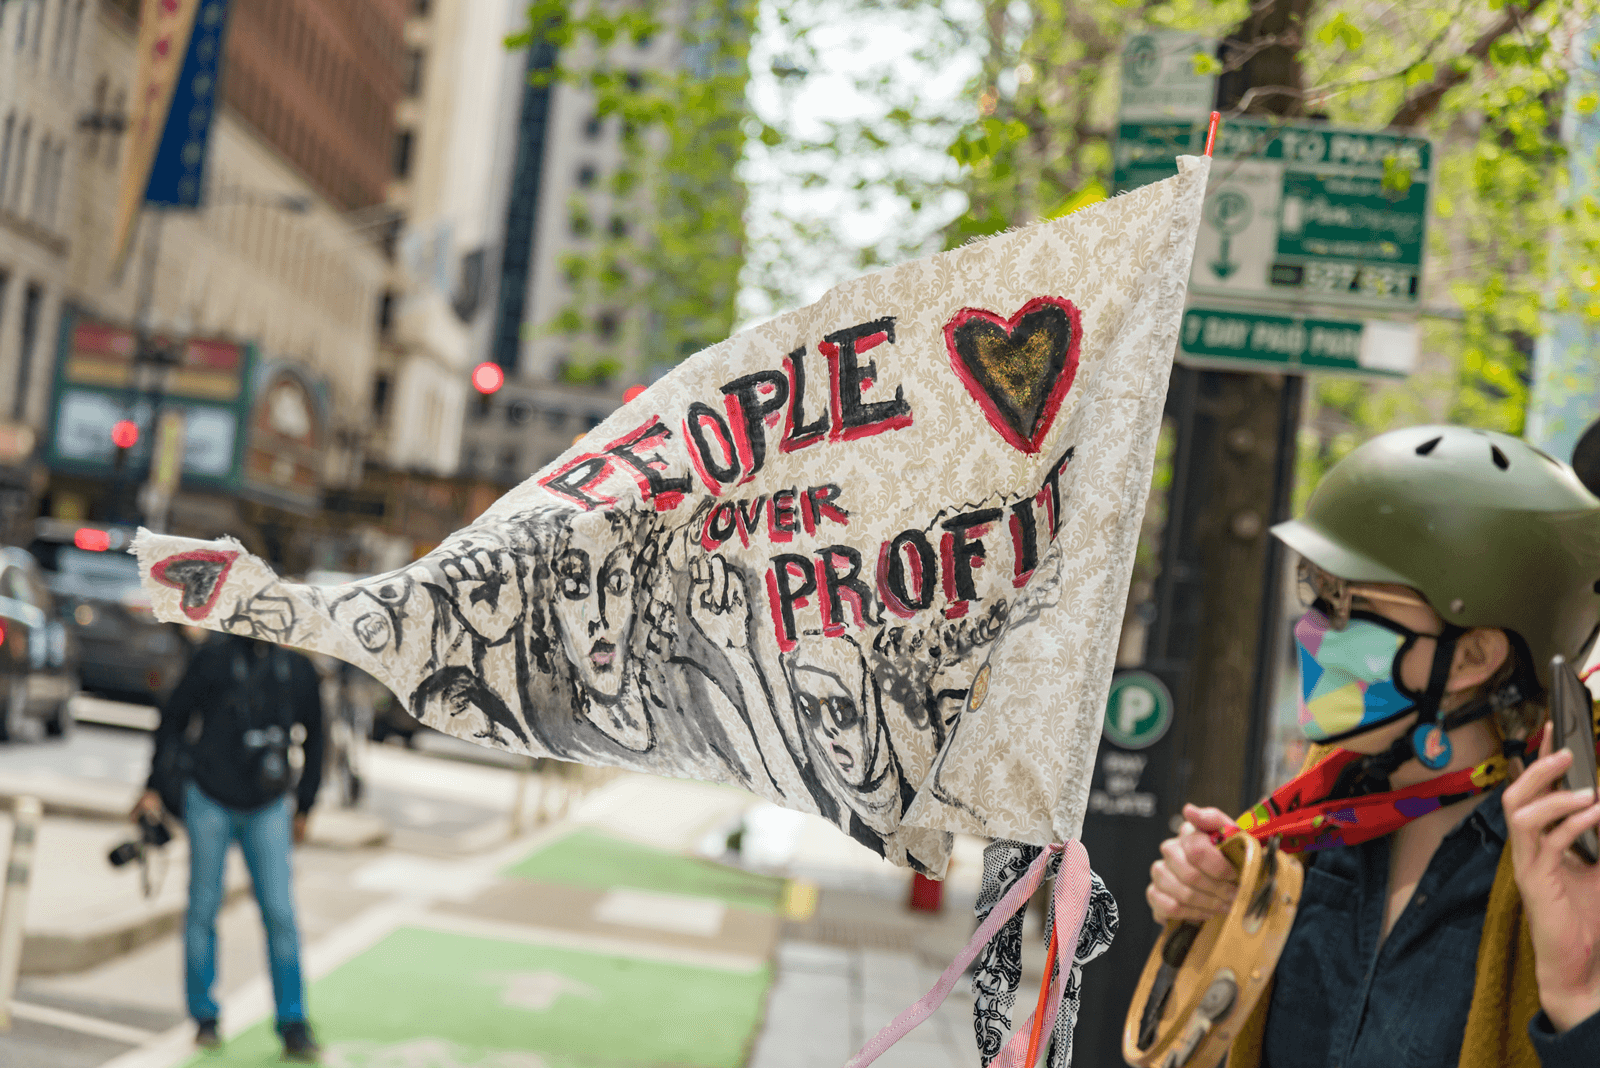 PEOPLE
OVER
PROFIT
PAY TO PARK
7 DAY PAID PARK
P
PAY
BY
PLATE